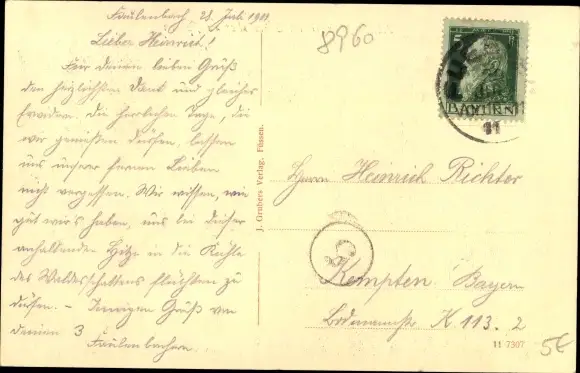 Faulenbach, 28. Juli 1911
Lieber Heinrich!
Für deinen lieben Gruß
den herzlichsten Dank und gleiches
Erwidern. Die herrlichen Tage, die
wir genießen dürfen, lassen
uns unserer fernen Lieben
nicht vergessen. Wir wissen, wie
gut wir's haben, uns bei dieser
anhaltenden Hitze in die Kühle
des Waldesschattens flüchten zu
dürfen. – Innigen Gruß von
deinen 3
Faulenbachern.
J. Grubers Verlag, Füssen.
8960
BAYERN
11
Herrn Heinrich Richter
Kempten Bayern
K 113. 2
11 7307
5€